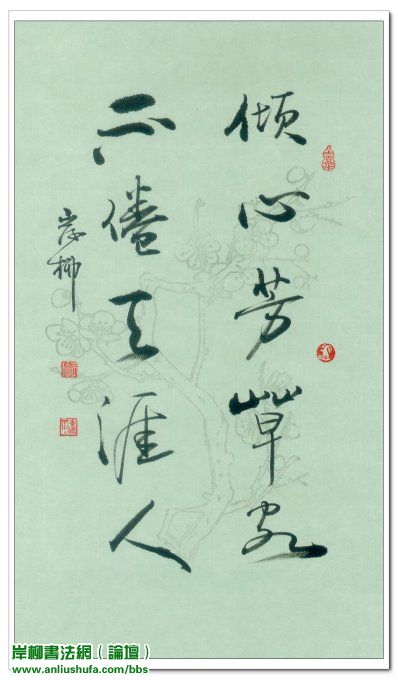 倾心芳草
不倦天涯人
岸柳
岸柳書法網（論壇）
www.anliushufa.com/bbs